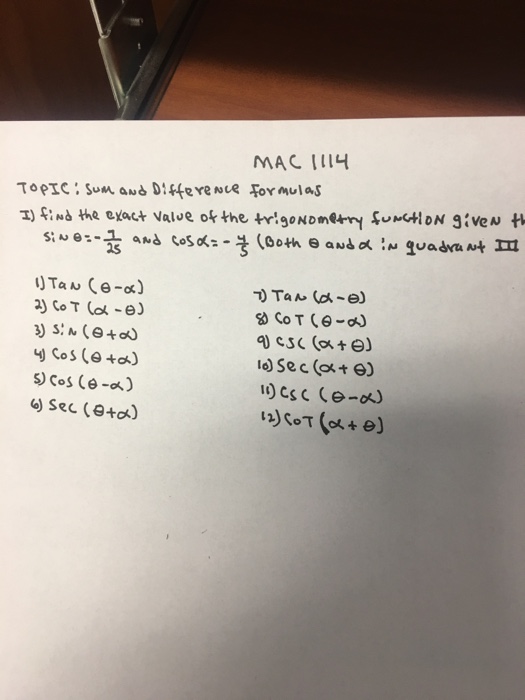 MAC 1114
TOPIC: Sum and Difference formulas
I) find the exact value of the trigonometry function given th
Sin θ = -7/25 and cos α = -4/5 (Both θ and α in quadrant III
1) Tan (θ-α)
2) COT (α-θ)
3) Sin (θ+α)
4) Cos (θ+α)
5) Cos (θ-α)
6) Sec (θ+α)
7) Tan (α-θ)
8) COT (θ-α)
9) CSC (α+θ)
10) Sec (α+θ)
11) CSC (θ-α)
12) COT (α+θ)